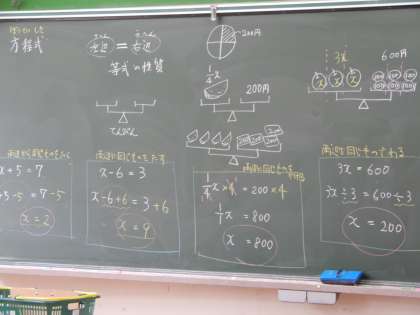 ほうていしき
方程式
左辺 = 右辺
等式の性質
てんびん
200円
1/4x
200円
3x
600円
x x x
100 100 100
100 100 100
200 200 200 200
x + 5 = 7
x + 5 - 5 = 7 - 5
x = 2
両辺に同じものをたす
x - 6 = 3
x - 6 + 6 = 3 + 6
x = 9
両辺に同じものをかける
1/4x × 4 = 200 × 4
1/1x = 800
x = 800
両辺を同じものでわる
3x = 600
3x ÷ 3 = 600 ÷ 3
x = 200